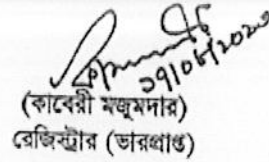 ১৭/০৮/২০২৩
(কাবেরী মজুমদার)
রেজিস্ট্রার (ভারপ্রাপ্ত)